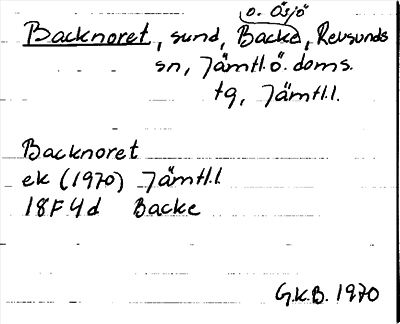 o. Ösjö
Backnoret, sund, Backe, Revsunds
sn, Jämtl. ö. doms.
tg, Jämtl. l.
Backnoret
ek (1970) Jämtl. l.
18F 4d Backe
G.K.B. 1970